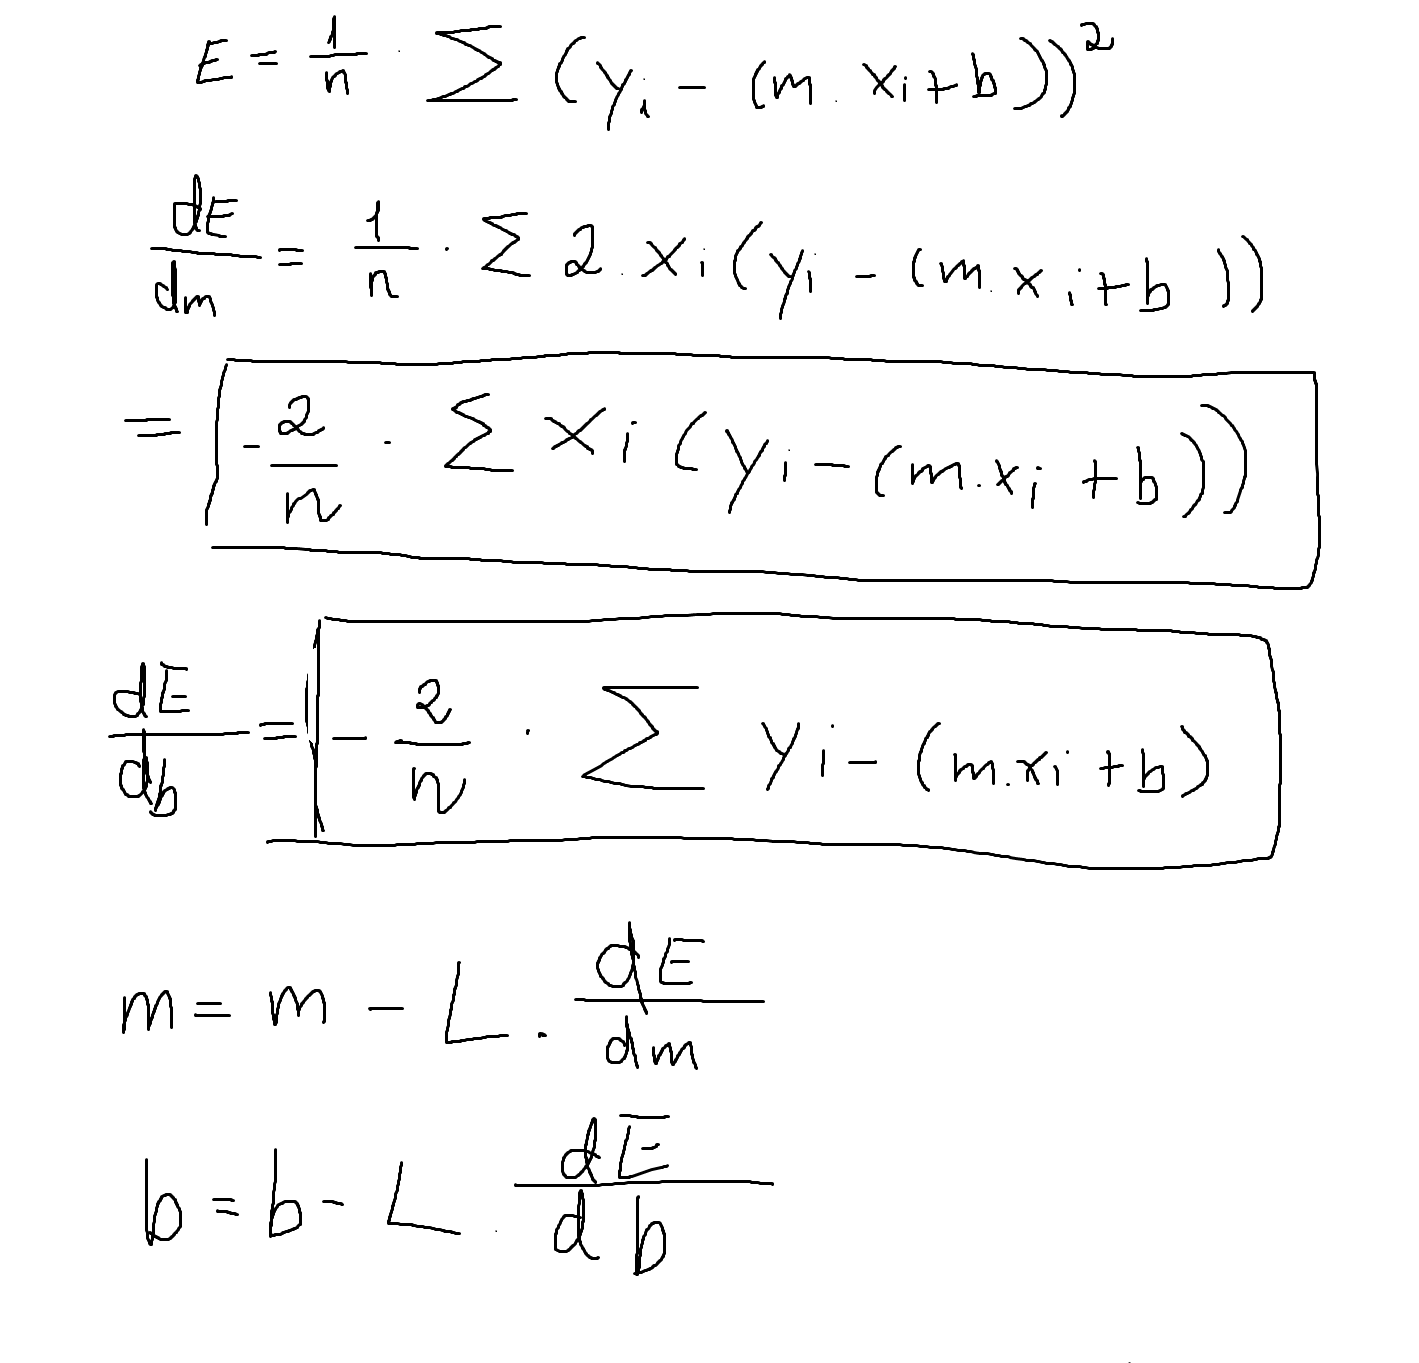 E = 1/n · Σ (yᵢ - (m . xᵢ + b))²
dE/dm = 1/n · Σ 2 . xᵢ (yᵢ - (m . xᵢ + b))
= -2/n · Σ xᵢ (yᵢ - (m . xᵢ + b))
dE/db = -2/n · Σ yᵢ - (m . xᵢ + b)
m = m - L . dE/dm
b = b - L . dE/db